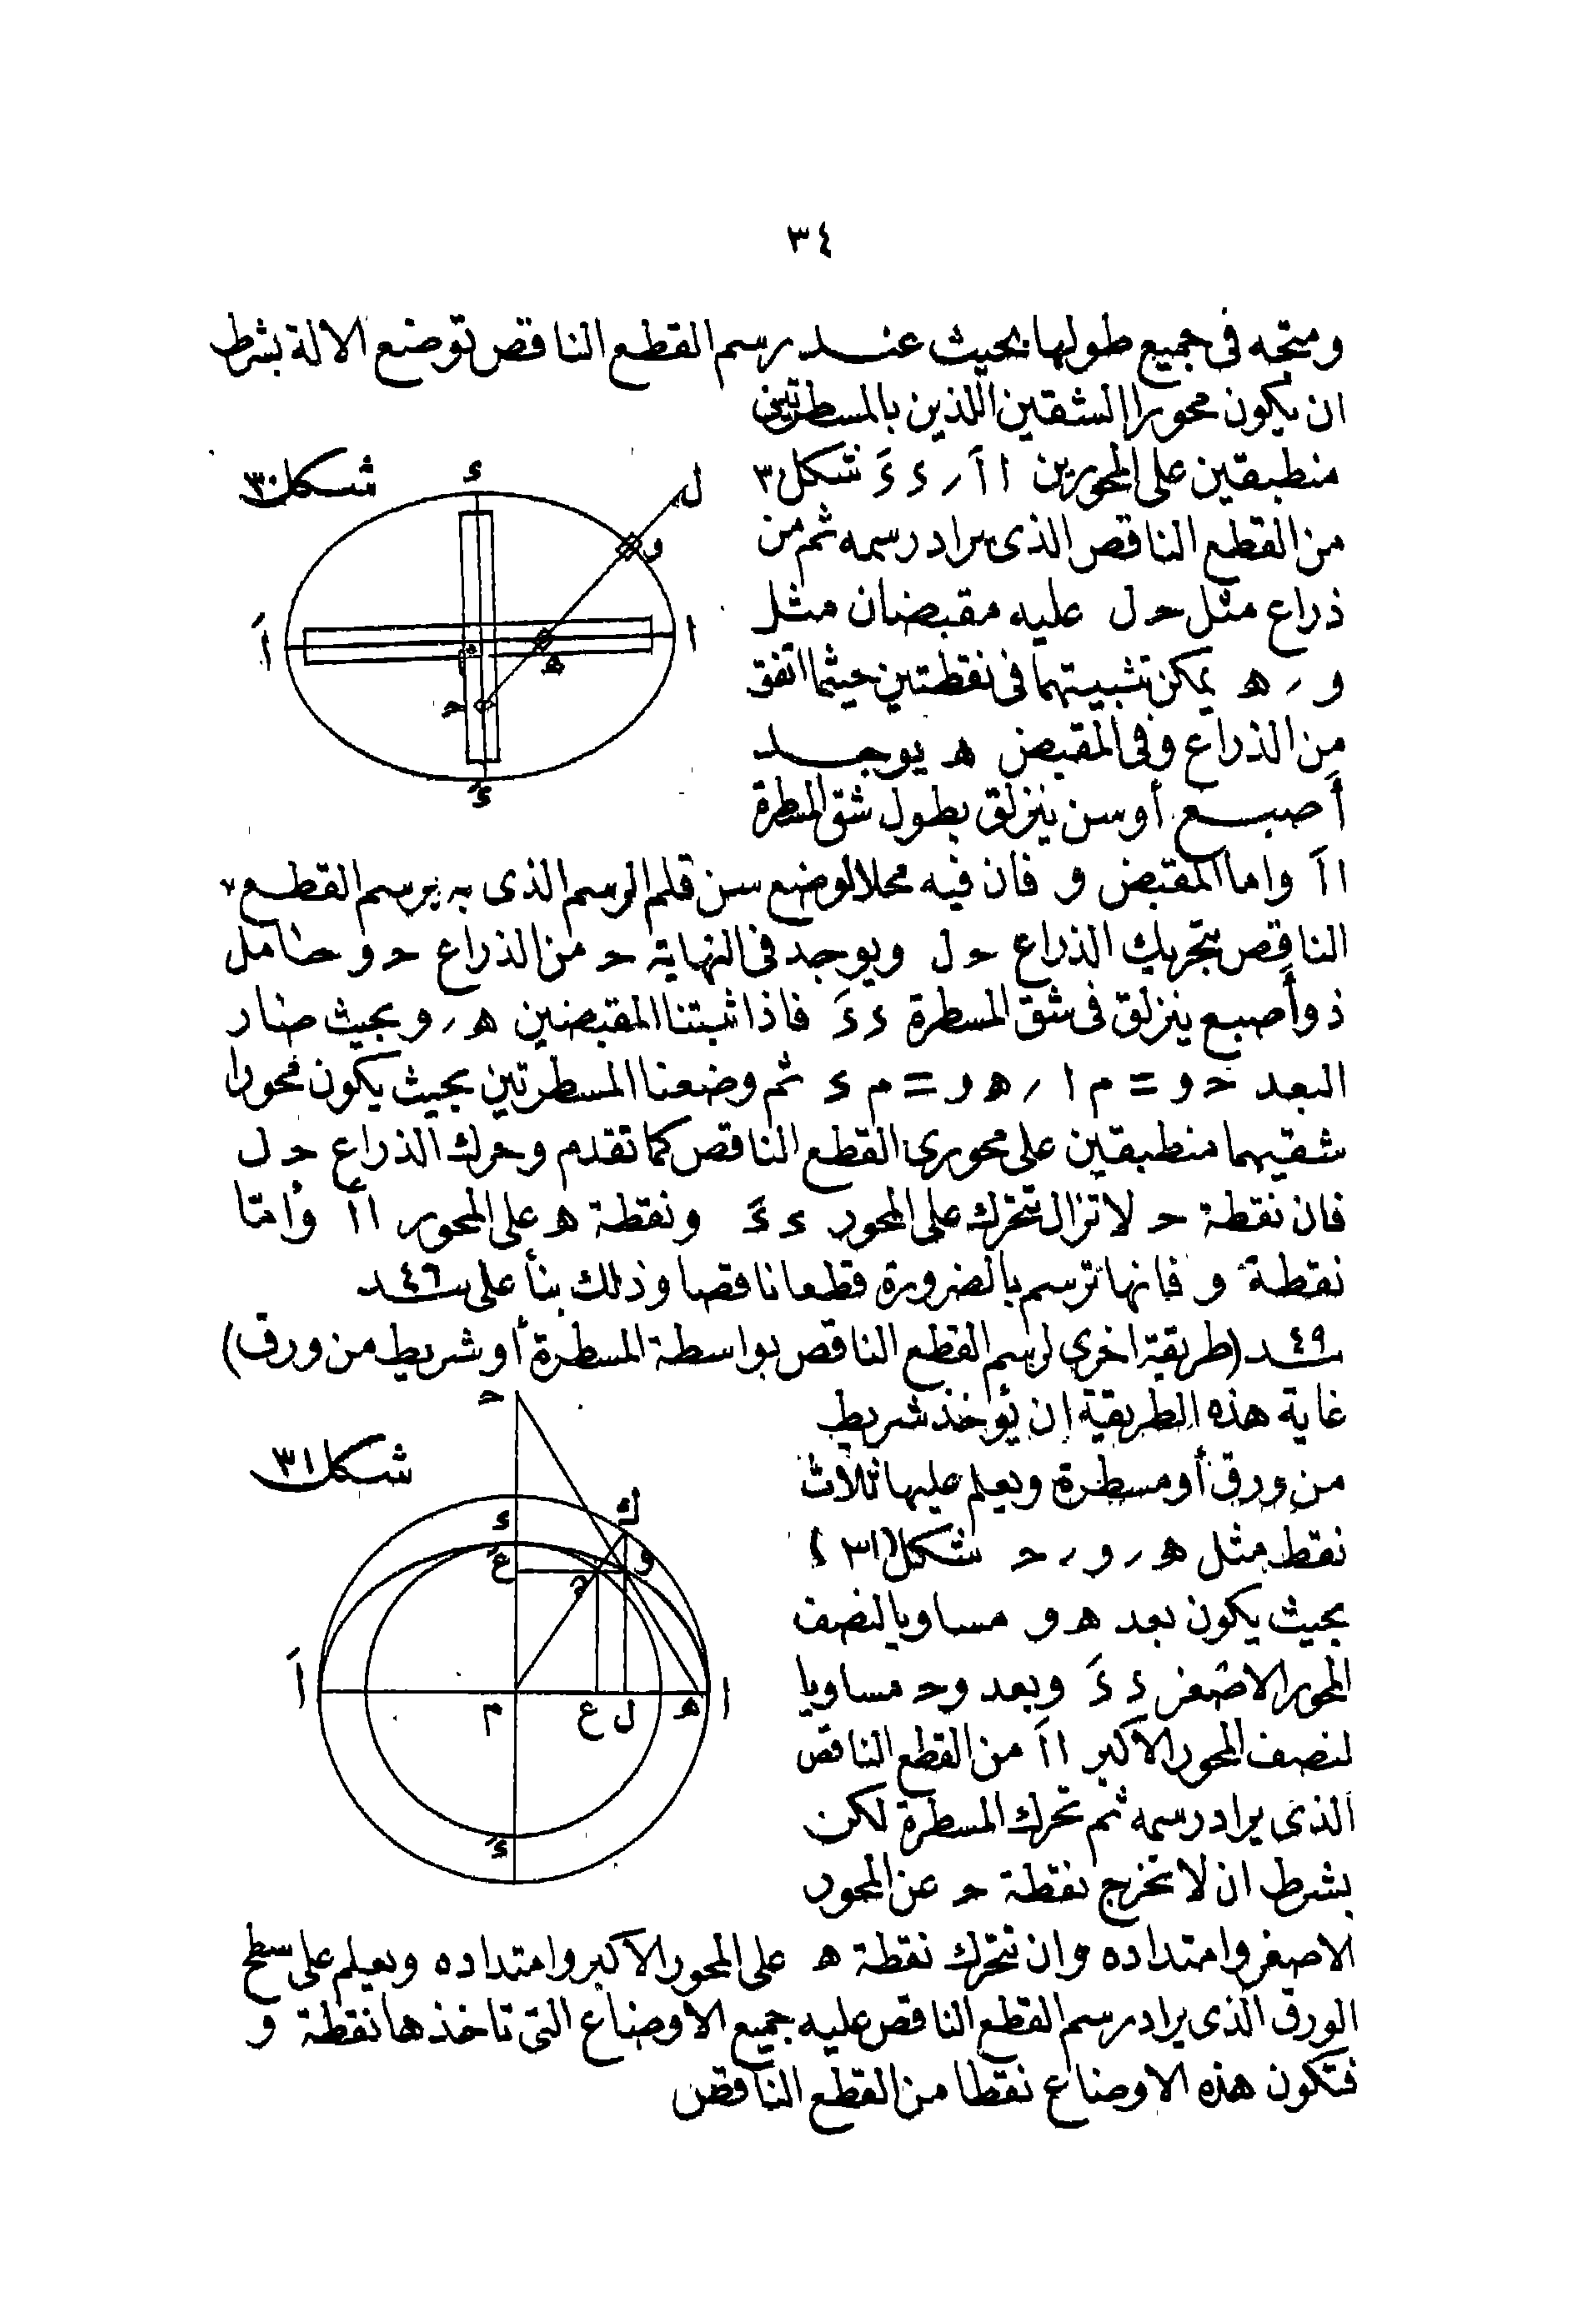 ٣٤
ومتجه فى جميع طولها بحيث عند رسم القطع الناقص توضع الالة بشرط
ان يكون محورا الشقين اللذين بالمسطرتين
منطبقين على المحورين ا اَ ر ء ءَ شكل ٣٠
من القطع الناقص الذى يراد رسمه ثم من
ذراع مثل حـ ل عليه مقبضان مثل
و ر هـ يمكن تثبيتهما فى نقطتين حيثما اتفق
من الذراع وفى المقبض هـ يوجد
أصبع أوسن ينزلق بطول شق المسطرة
ا اَ واما المقبض و فان فيه محلا لوضع سن قلم الرسم الذى به يرسم القطع
الناقص بتحريك الذراع حـ ل ويوجد فى النهاية حـ من الذراع حـ و حامل
ذو أصبع ينزلق فى شق المسطرة ء ءَ فاذا ثبتنا المقبضين هـ ر و بحيث صار
البعد حـ و = م ا ر هـ و = م ء ثم وضعنا المسطرتين بحيث يكون محورا
شقيهما منطبقين على محورى القطع الناقص كما تقدم وحرك الذراع حـ ل
فان نقطة حـ لا تزال تتحرك على المحور ء ءَ ونقطة هـ على المحور ا اَ وأمّا
نقطة و فانها ترسم بالضرورة قطعا ناقصا وذلك بنأ على ٤٦ سند
٤٩ سند (طريقة اخرى لرسم القطع الناقص بواسطة المسطرة أو شريط من ورق)
غاية هذه الطريقة ان يؤخذ شريط
من ورق أو مسطرة ويعلم عليها ثلاث
نقط مثل هـ ر و ر حـ شكل (٣١)
بحيث يكون بعد هـ و مساويا لنصف
المحور الاصغر ء ءَ وبعد و حـ مساويا
لنصف المحور الاكبر ا اَ من القطع الناقص
الذى يراد رسمه ثم تحرك المسطرة لكن
بشرط ان لا تخرج نقطة حـ عن المحور
الاصغر وامتداده وان تتحرك نقطة هـ على المحور الاكبر وامتداده ويعلم على سطح
الورق الذى يراد رسم القطع الناقص عليه جميع الاوضاع التى تاخذها نقطة و
فتكون هذه الاوضاع نقطا من القطع الناقص
شكل ٣٠
ء
ل
و
ا
اَ
م
هـ
حـ
ءَ
شكل ٣١
حـ
ك
ء
ءَ
و
عَ
ا
اَ
م
ع
ل
هـ
ءَ